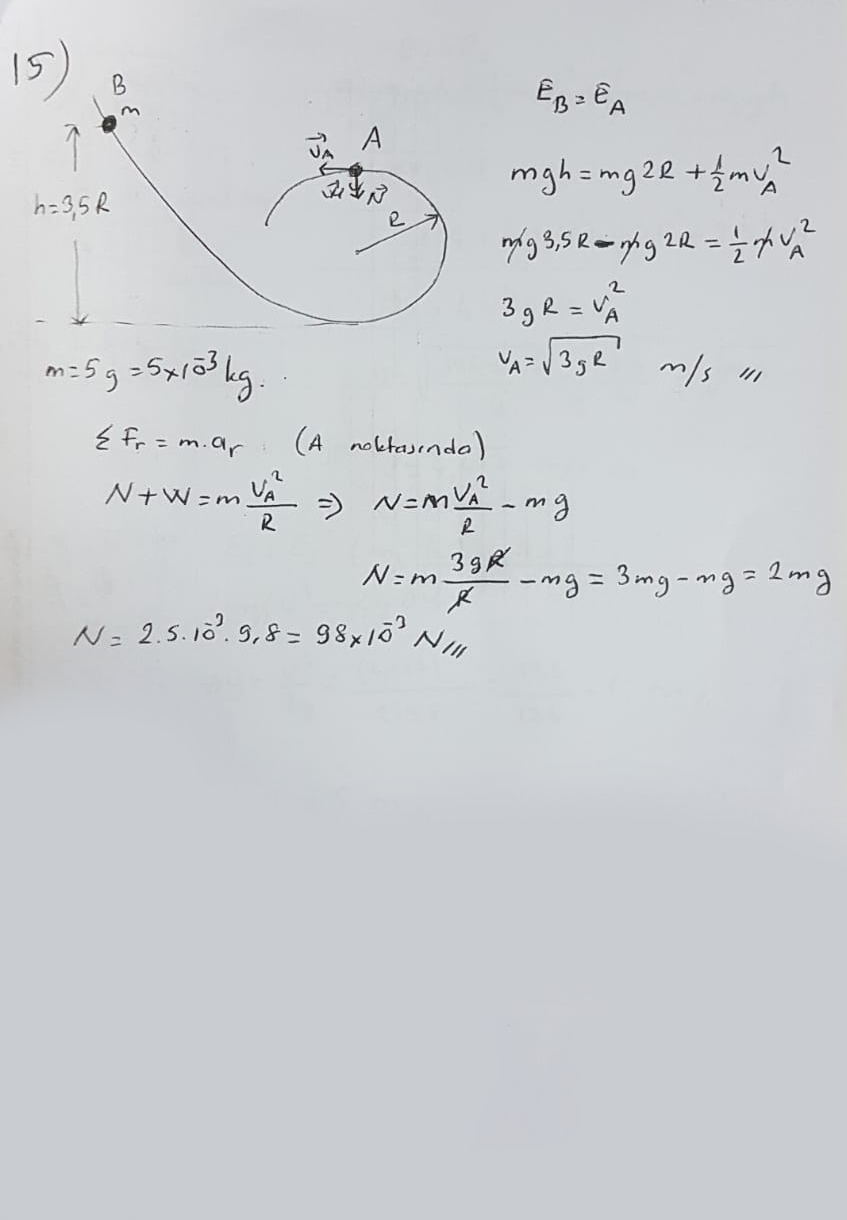 15)
B
m
A
v⃗A
W⃗ N⃗
R
h=3,5R
EB = EA
mgh = mg2R + 1/2 mvA²
mg3,5R - mg2R = 1/2 mvA²
3gR = vA²
vA = √3gR m/s ///
m=5g = 5x10⁻³ kg.
Σ Fr = m.ar (A noktasında)
N+W = m vA²/R ⇒ N = m vA²/R - mg
N = m 3gR/R - mg = 3mg - mg = 2mg
N = 2.5.10⁻³. 9,8 = 98x10⁻³ N ///